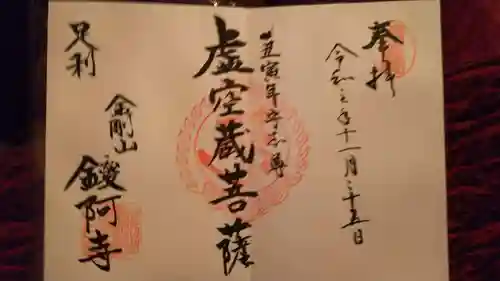 奉拝
令和元年十一月二十五日
丑寅年守本尊
虚空蔵菩薩
足利
金剛山
鑁阿寺